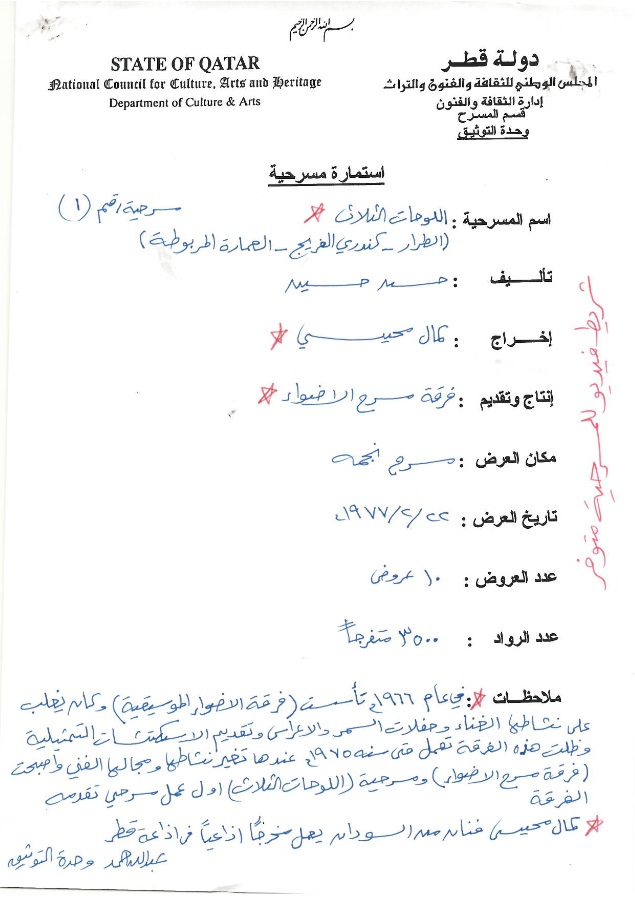 بسم الله الرحمن الرحيم
STATE OF QATAR
National Council for Culture, Arts and Heritage
Department of Culture & Arts
دولة قطر
المجلس الوطني للثقافة والفنون والتراث
إدارة الثقافة والفنون
قسم المسرح
وحدة التوثيق
استمارة مسرحية
مسرحية رقم (١)
اسم المسرحية : اللوحات الثلاث
(الطرار - كندري الفريج - العمارة المربوطة)
تأليف : حسن حسين
إخراج : كمال محيسي
إنتاج وتقديم : فرقة مسرح الاضواء
مكان العرض : مسرح نجمه
تاريخ العرض : ٢٢/٢/١٩٧٧م
عدد العروض : ١٠ عروض
عدد الرواد : ٣٥٠٠ متفرجاً
ملاحظات : في عام ١٩٦٦م تأسست (فرقة الاضواء الموسيقية) وكان يغلب
على نشاطها الغناء وحفلات السمر والاعراس وتقديم الاسكتشات التمثيلية
وظلت هذه الفرقة تعمل حتى سنه ١٩٧٥م عندها تغير نشاطها ومجالها الفني واصبحت
(فرقة مسرح الاضواء) ومسرحية (اللوحات الثلاث) اول عمل مسرحي تقدمه
الفرقة
كمال محيسي فنان من السودان يعمل مخرجاً اذاعياً في اذاعة قطر
عبدالله احمد وحدة التوثيق
شريط فيديو للمسرحية متوفر